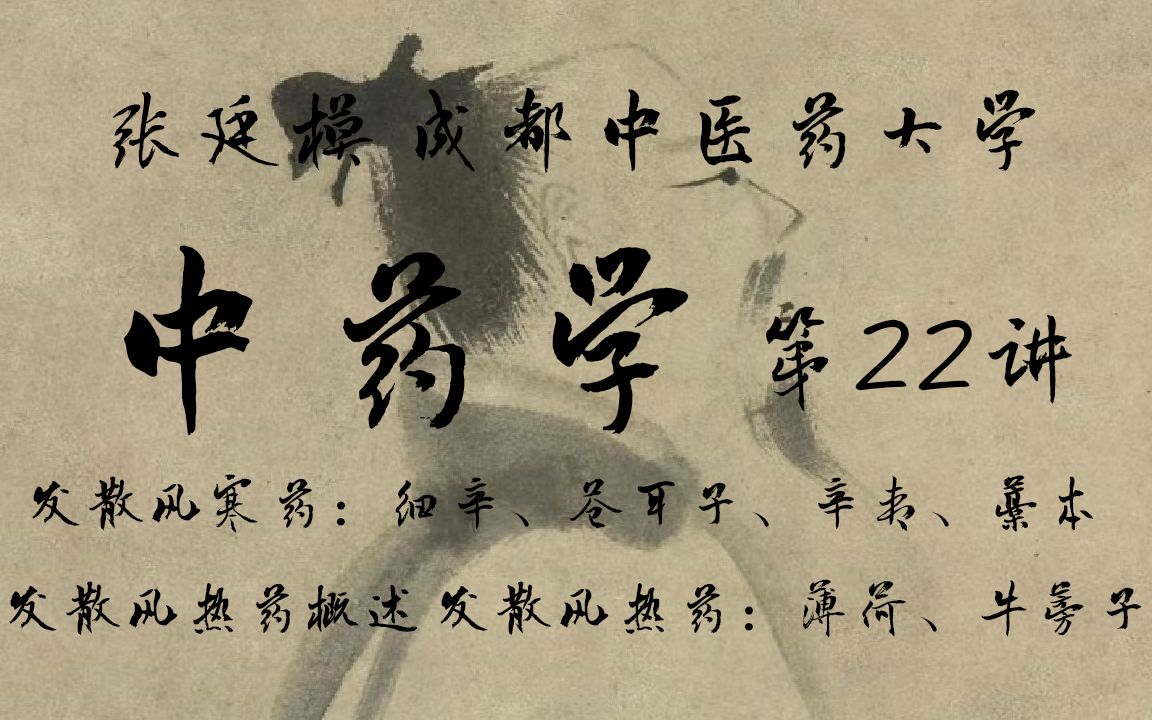 张廷模成都中医药大学
中药学 第22讲
发散风寒药：细辛、苍耳子、辛夷、藁本
发散风热药概述 发散风热药：薄荷、牛蒡子